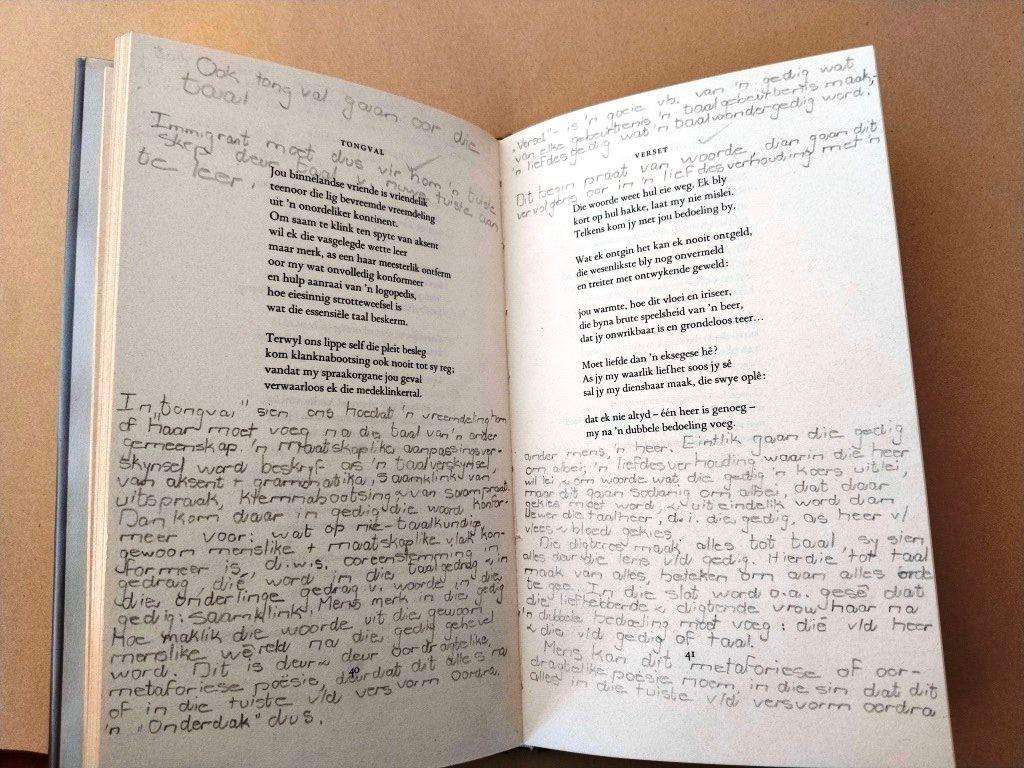 Ook tongval gaan oor die
taal
Immigrant moet dus vir hom 'n tuiste
skep deur taal 'n nuwe tuiste aan
te leer.
TONGVAL
Jou binnelandse vriende is vriendelik
teenoor die lig bevreemde vreemdeling
uit 'n onordeliker kontinent.
Om saam te klink ten spyte van aksent
wil ek die vasgelegde wette leer
maar merk, as een haar meesterlik ontferm
oor my wat onvolledig konformeer
en hulp aanraai van 'n logopedis,
hoe eiesinnig strotteweefsel is
wat die essensiële taal beskerm.
Terwyl ons lippe self die pleit besleg
kom klanknabootsing ook nooit tot sy reg;
vandat my spraakorgane jou geval
verwaarloos ek die medeklinkertal.
In „tongval" sien ons hoedat 'n vreemdeling hom
of haar moet voeg na die taal van 'n ander
gemeenskap. 'n Maatskaplike aanpassingsver-
skynsel word beskryf as 'n taalverskynsel,
van aksent + grammatika, saamklink v.
uitspraak, klemnabootsing & van saampraat.
Dan kom daar in gedig die word konfor-
meer voor: wat op nie-taalkundig,
gewoon menslike + maatskaplike vlak kon-
formeer is, d.w.s. ooreenstemming in
gedrag, dié word in die taalgedrag, in
die onderlinge gedrag v. woorde in die
gedig: saamklink. Mens merk in die gedig
hoe maklik die woorde uit die gewoon
menslike wêreld na die gedig gehewel
word. Dit is deur & deur oordragtelike,
metaforiese poësie, deurdat dit alles na
of in die tuiste v/d versvorm oordra.
'n „Onderdak" dus.
40
„Verset" - is 'n goeie vb. van 'n gedig wat
van elke gebeurtenis 'n taalgebeurtenis maak,
'n liefdesgedig wat 'n taalwondergedig word.
Dit begin praat van woorde, dan gaan dit
vervolgens oor in 'n liefdesverhouding met 'n
VERSET
Die woorde weet hul eie weg. Ek bly
kort op hul hakke, laat my nie mislei.
Telkens kom jy met jou bedoeling by.
Wat ek ontgin het kan ek nooit ontgeld,
die wesenlikste bly nog onvermeld
en treiter met ontwykende geweld:
jou warmte, hoe dit vloei en iriseer,
die byna brute speelsheid van 'n beer,
dat jy onwrikbaar is en grondeloos teer...
Moet liefde dan 'n eksegese hê?
As jy my waarlik liefhet soos jy sê
sal jy my diensbaar maak, die swye oplê:
dat ek nie altyd – één heer is genoeg –
my na 'n dubbele bedoeling voeg.
ander mens, 'n heer. Eintlik gaan die gedig
om albei; 'n liefdesverhouding waarin die heer
wil lei & om woorde wat die gedig 'n koers uitlei,
maar dit gaan sodanig om albei, dat daar
gekies moet word, & uiteindelik word dan
liewer die taalheer, d.i. die gedig, as heer v/
vlees & bloed gekies.
Die digteres maak alles tot taal, sy sien
alles deur die lens v/d gedig. Hierdie 'tot taal
maak van alles, beteken om aan alles orde
te gee. In die slot word o.a. gesê dat
die liefhebbende & digtende vrou haar na
'n dubbele bedoeling moet voeg: dié v/d heer
& die v/d gedig of taal.
Mens kan dit metaforiese of oor-
draagtelike poësie noem, in die sin dat dit
alles in die tuiste v/d versvorm oordra.
41